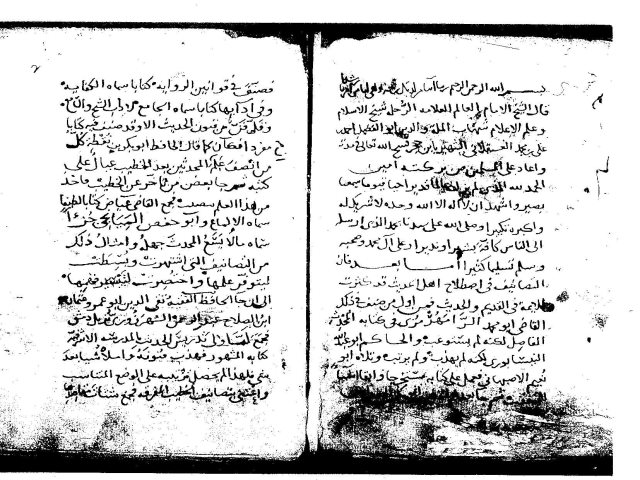 بسم الله الرحمن الرحيم ربنا آتنا من لدنك رحمة
قال الشيخ الامام العالم العلامة الرحلة شيخ الاسلام
وعلم الاعلام شهاب الملة والدين ابو الفضل احمد
علي بن محمد العسقلاني الشهير بابن حجر فسح الله تعالى في مدته
واعاد على المسلمين من بركته آمين
الحمد لله الذي لم يزل عالما قديرا حيا قيوما سميعا
بصيرا واشهد ان لا اله الا الله وحده لا شريك له
واكبره تكبيرا وصلى الله على سيدنا محمد الذي ارسله
الى الناس كافة بشيرا ونذيرا وعلى آل محمد وصحبه
وسلم تسليما كثيرا اما بعد فان
التصانيف في اصطلاح اهل الحديث قد كثرت
للايمة في القديم والحديث فمن اول من صنف في ذلك
القاضي ابو محمد الرامهرمزي في كتابه المحدث
الفاصل لكنه لم يستوعب والحاكم ابو عبد الله
النيسابوري لكنه لم يهذب ولم يرتب وتلاه ابو
نعيم الاصبهاني فعمل على كتابه مستخرجا وابقى اشيا
فصنف في قوانين الرواية كتابا سماه الكفاية
وفي ادابها كتابا سماه الجامع لاداب الشيخ والسامع
وقل فن من فنون الحديث الا وقد صنف فيه كتابا
مفردا فكان كما قال الحافظ ابو بكر بن نقطة كل
من انصف علم ان المحدثين بعد الخطيب عيال على
كتبه ثم جا بعض من تاخر عن الخطيب فاخذ
من هذا العلم بنصيب فجمع القاضي عياض كتابا لطيفا
سماه الالماع وابو حفص الميانجي جزءا
سماه ما لا يسع المحدث جهله وامثال ذلك
من التصانيف التي اشتهرت وبسطت
ليتوفر علمها واختصرت ليتيسر فهمها
الى ان جا الحافظ الفقيه تقي الدين ابو عمرو عثمان
ابن الصلاح عبد الرحمن الشهرزوري نزيل دمشق
فجمع لما ولي تدريس الحديث بالمدرسة الاشرفية
كتابه المشهور فهذب فنونه واملاه شيا بعد
شي فلهذا لم يحصل ترتيبه على الوضع المناسب
واعتنى بتصانيف الخطيب المفرقة فجمع شتات مقاصدها